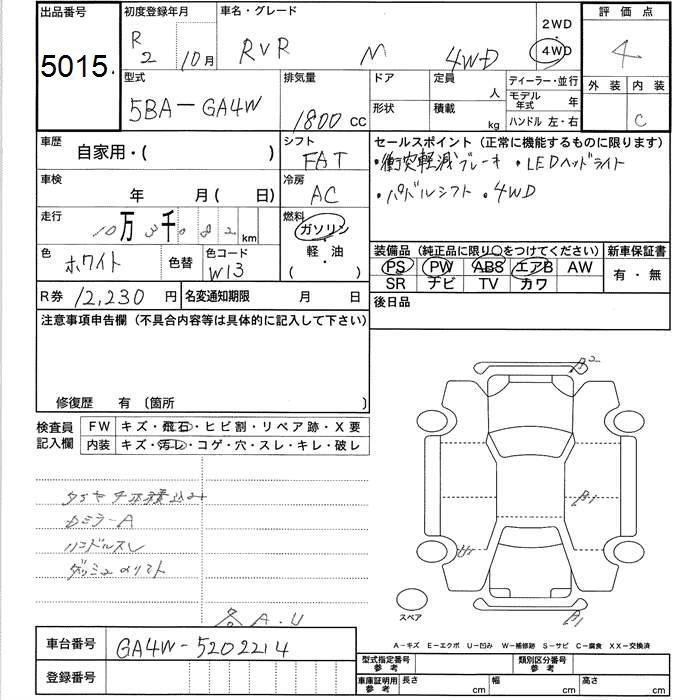 出品番号 初度登録年月 車名・グレード 2WD 評価点
5015 R2 10月 RVR M 4WD 4WD 4
型式 排気量 ドア 定員 人 ディーラー・並行 外装 内装
5BA-GA4W 1800 CC 形状 積載 kg モデル年式 年 C
ハンドル 左・右
車歴 自家用・( ) シフト FAT セールスポイント (正常に機能するものに限ります)
・衝突軽減ブレーキ ・LEDヘッドライト
車検 年 月 ( 日) 冷房 AC ・パドルシフト ・4WD
走行 10万3千082km 燃料 ガソリン 軽・油 ( )
色 ホワイト 色替 色コード W13 装備品 (純正品に限り○をつけてください) 新車保証書
PS PW ABS エアB AW 有・無
SR ナビ TV カワ
R券 12,230円 名変通知期限 月 日 後日品
注意事項申告欄 (不具合内容等は具体的に記入して下さい)
修復歴 有 〔箇所 〕
検査員記入欄 FW キズ・飛石・ヒビ割・リペア跡・X要
内装 キズ・汚レ・コゲ・穴・スレ・キレ・破レ
B2
タイヤ4本積込み
Dミラ-A
B1
ハンドルスレ
ダッシュ
スペア
各A.U
B1
A-キズ E-エクボ U-凹み W-補修跡 S-サビ C-腐食 XX-交換済
車台番号 GA4W-5202214
登録番号
型式指定番号 参考 類別区分番号 参考
車庫証明用 参考 長さ cm 幅 cm 高さ cm